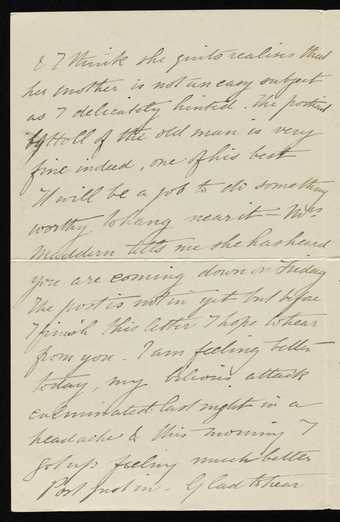 & I think she quite realises that
her mother is not an easy subject
as I delicately hinted. The portrait
by Holl of the old man is very
fine indeed, one of his best
It will be a job to do something
worthy to hang near it – Miss
tells me she has heard
you are coming down on Friday
The post is not in yet but before
I finish this letter I hope to hear
from you. I am feeling better
today, my bilious attack
culminated last night in a
headache & this morning I
got up feeling much better
Post just in – Glad to hear